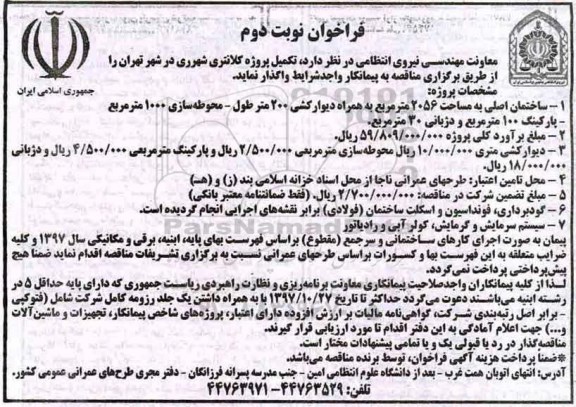 فراخوان نوبت دوم
جمهوری اسلامی ایران
معاونت مهندسی نیروی انتظامی در نظر دارد، تکمیل پروژه کلانتری شهرری در شهر تهران را
از طریق برگزاری مناقصه به پیمانکار واجدشرایط واگذار نماید.
مشخصات پروژه:
۱ – ساختمان اصلی به مساحت ۲۰۵۶ مترمربع به همراه دیوارکشی ۲۰۰ متر طول – محوطه‌سازی ۱۰۰۰ مترمربع
– پارکینگ ۱۰۰ مترمربع و دژبانی ۳۰ مترمربع.
۲ – مبلغ برآورد کلی پروژه ۵۹/۸۰۹/۰۰۰/۰۰۰ ریال.
۳ – دیوارکشی متری ۱۰/۰۰۰/۰۰۰ ریال محوطه‌سازی مترمربعی ۲/۵۰۰/۰۰۰ ریال و پارکینگ مترمربعی ۴/۵۰۰/۰۰۰ ریال و دژبانی
۱۸/۰۰۰/۰۰۰ ریال.
۴ – محل تامین اعتبار: طرحهای عمرانی ناجا از محل اسناد خزانه اسلامی بند (ز) و (هـ)
۵ – مبلغ تضمین شرکت در مناقصه: ۲/۷۰۰/۰۰۰/۰۰۰ ریال. (فقط ضمانتنامه معتبر بانکی)
۶ – گودبرداری، فونداسیون و اسکلت ساختمان (فولادی) برابر نقشه‌های اجرایی انجام گردیده است.
۷ – سیستم سرمایش و گرمایش، کولر آبی و رادیاتور
پیمان به صورت اجرای کارهای ساختمانی و سرجمع (مقطوع) براساس فهرست بهای پایه، ابنیه، برقی و مکانیکی سال ۱۳۹۷ و کلیه
ضرایب متعلقه به این فهرست بها و کسورات براساس طرحهای عمرانی نسبت به برگزاری تشریفات مناقصه اقدام نماید ضمنا هیچ
پیش‌پرداختی پرداخت نمی‌گردد.
لذا از کلیه پیمانکاران واجدصلاحیت پیمانکاری معاونت برنامه‌ریزی و نظارت راهبردی ریاست جمهوری که دارای پایه حداقل ۵ در
رشته ابنیه می‌باشند دعوت می‌گردد حداکثر تا تاریخ ۱۳۹۷/۱۰/۲۷ با به همراه داشتن یک جلد رزومه کامل شرکت شامل (فتوکپی
– برابر اصل رتبه‌بندی شرکت، گواهی‌نامه مالیات بر ارزش افزوده دارای اعتبار، پروژه‌های شاخص پیمانکار، تجهیزات و ماشین‌آلات
و...) جهت اعلام آمادگی به این دفتر اقدام تا مورد ارزیابی قرار گیرند.
مناقصه‌گذار در رد یا قبولی یک و یا تمامی پیشنهادات مختار است.
*ضمنا پرداخت هزینه آگهی فراخوان، توسط برنده مناقصه می‌باشد.
آدرس: انتهای اتوبان همت غرب – بعد از دانشگاه علوم انتظامی امین – جنب مدرسه پسرانه فرزانگان – دفتر مجری طرح‌های عمرانی عمومی کشور.
تلفن: ۴۴۷۶۳۵۲۹–۴۴۷۶۳۹۷۱